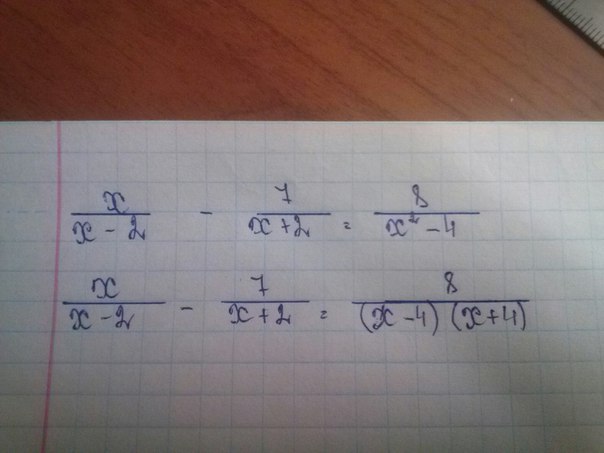 x/(x - 2) - 7/(x + 2) = 8/(x² - 4)
x/(x - 2) - 7/(x + 2) = 8/((x - 4) (x + 4))